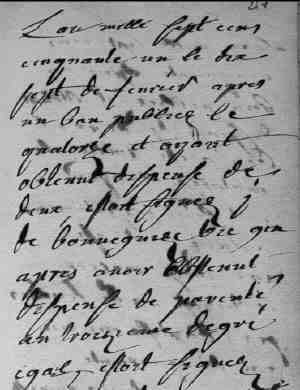 L'an mille sept cens
cinquante un le dix
sept de fevrier apres
un ban publiee le
quatorze et ayant
obtenut dispense des
deux estort signes
de bonnegarde vic gen
apres avoir obtenut
dispense de parente
au troizieme degré
egal, estort signee